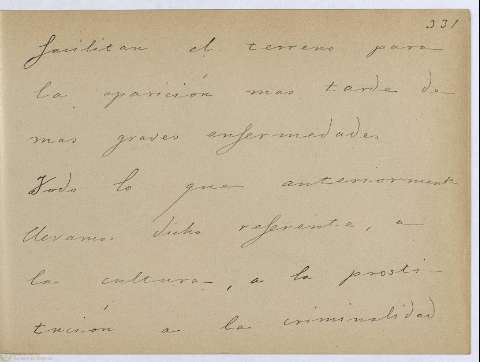 331
facilitan el terreno para
la aparición mas tarde de
mas graves enfermedades
Todo lo que anteriorment
llevamos dicho referente, a
la cultura, a la prosti-
tución a la criminalidad